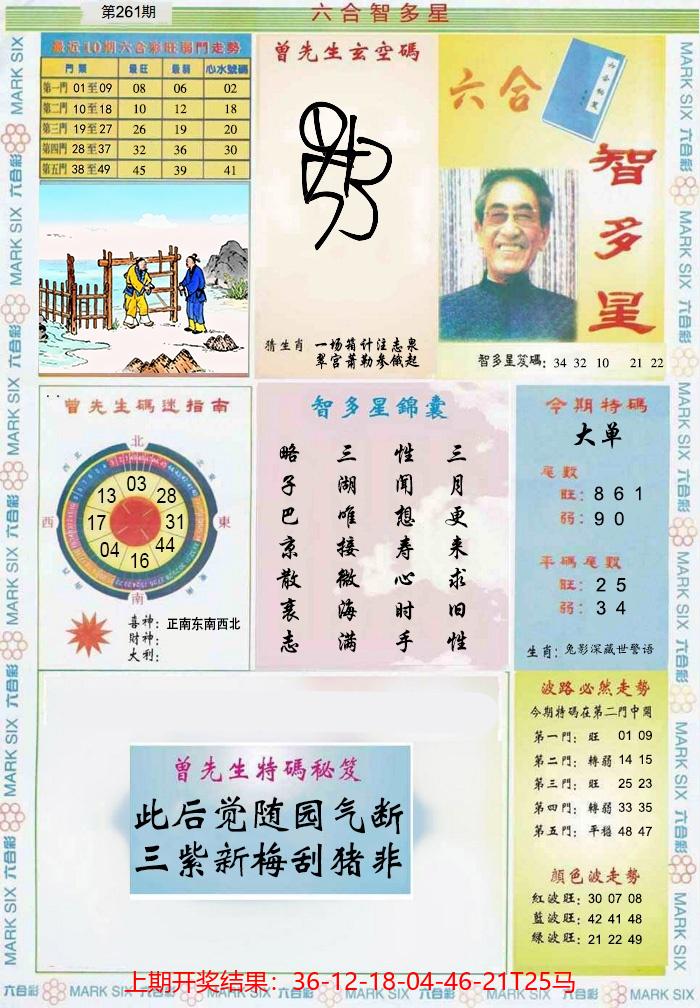 第261期
六合智多星
最近10期六合彩旺弱門走勢
門類 最旺 最弱 心水號碼
第一門 01至09 08 06 02
第二門 10至18 10 12 18
第三門 19至27 26 19 20
第四門 28至37 32 36 30
第五門 38至49 45 39 41
曾先生玄空碼
猜生肖 一场箱计注志泉
翠宫萧勒参俄起
六合
六合秘笈
智多星
智多星笈碼: 34 32 10 21 22
曾先生碼迷指南
北
西北
東北
西
東
南
03
13
28
17
31
04
44
16
喜神: 正南东南西北
財神:
大利:
智多星錦囊
三月更来求旧性
性闻想寿心时手
三湖唯接微海满
略子巴京散衷志
今期特碼
大单
尾數
旺: 8 6 1
弱: 9 0
平碼尾數
旺: 2 5
弱: 3 4
生肖: 兔影深藏世警语
曾先生特碼秘笈
此后觉随园气断
三紫新梅刮猪非
波路必然走勢
今期特碼在第二門中開
第一門: 旺 01 09
第二門: 轉弱 14 15
第三門: 旺 25 23
第四門: 轉弱 33 35
第五門: 平穩 48 47
顏色波走勢
紅波旺: 30 07 08
藍波旺: 42 41 48
绿波旺: 21 22 49
上期开奖结果：36-12-18-04-46-21T25马
六合彩 MARK SIX 六合彩 MARK SIX 六合彩 MARK SIX 六合彩 MARK SIX 六合彩